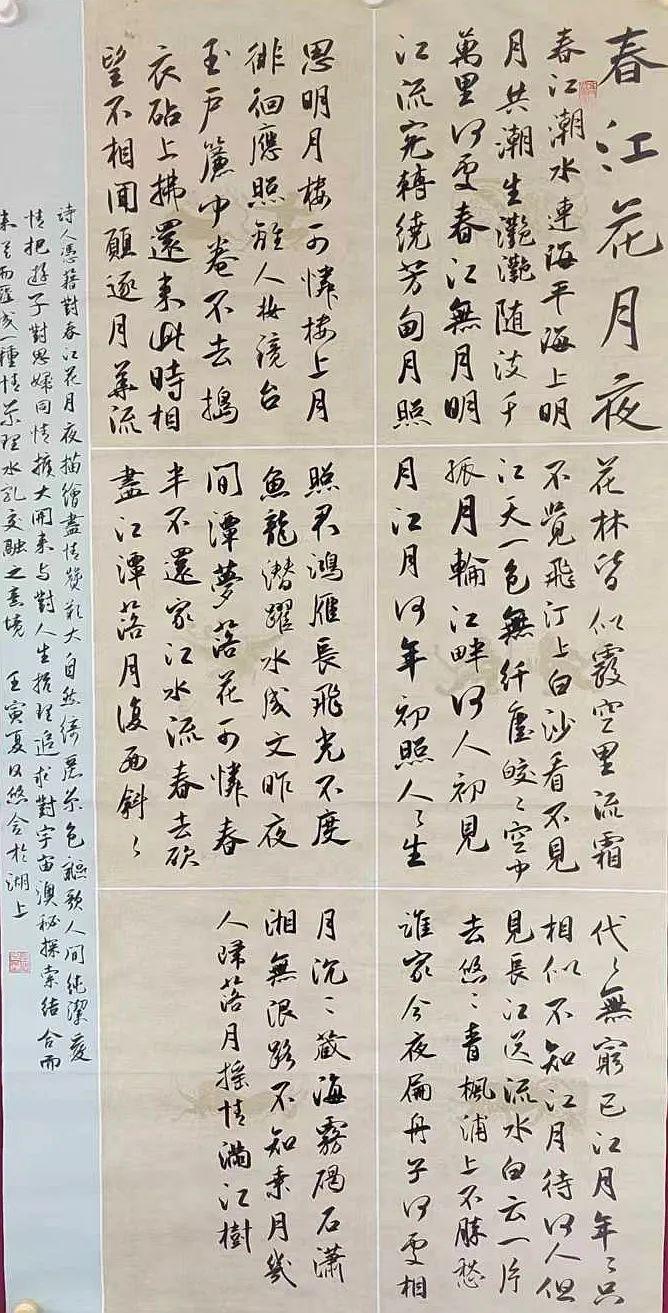 春江花月夜
春江潮水連海平海上明
月共潮生灧灧随波千
萬里何處春江無月明
江流宛轉繞芳甸月照
花林皆似霰空里流霜
不覺飛汀上白沙看不見
江天一色無纤塵皎〻空中
孤月輪江畔何人初見
月江月何年初照人〻生
代〻無窮已江月年〻只
相似不知江月待何人但
見長江送流水白云一片
去悠〻青楓浦上不勝愁
誰家今夜扁舟子何處相
思明月樓可憐樓上月
徘徊應照離人妝鏡台
玉戶簾中卷不去搗
衣砧上拂還來此時相
望不相聞願逐月華流
照君鴻雁長飛光不度
魚龍潛躍水成文昨夜
間潭夢落花可憐春
半不還家江水流春去欲
盡江潭落月復西斜〻
月沉〻藏海霧碣石瀟
湘無限路不知乘月幾
人歸落月搖情滿江樹
诗人憑藉對春江花月夜描繪盡情贊歎大自然绮麗景色謳歌人间純潔愛
情把遊子對思婦同情擴大開来与對人生哲理追求對宇宙澳秘探索结合而
来而匯成一種情景理水乳交融之意境 壬寅夏日悠於湖上